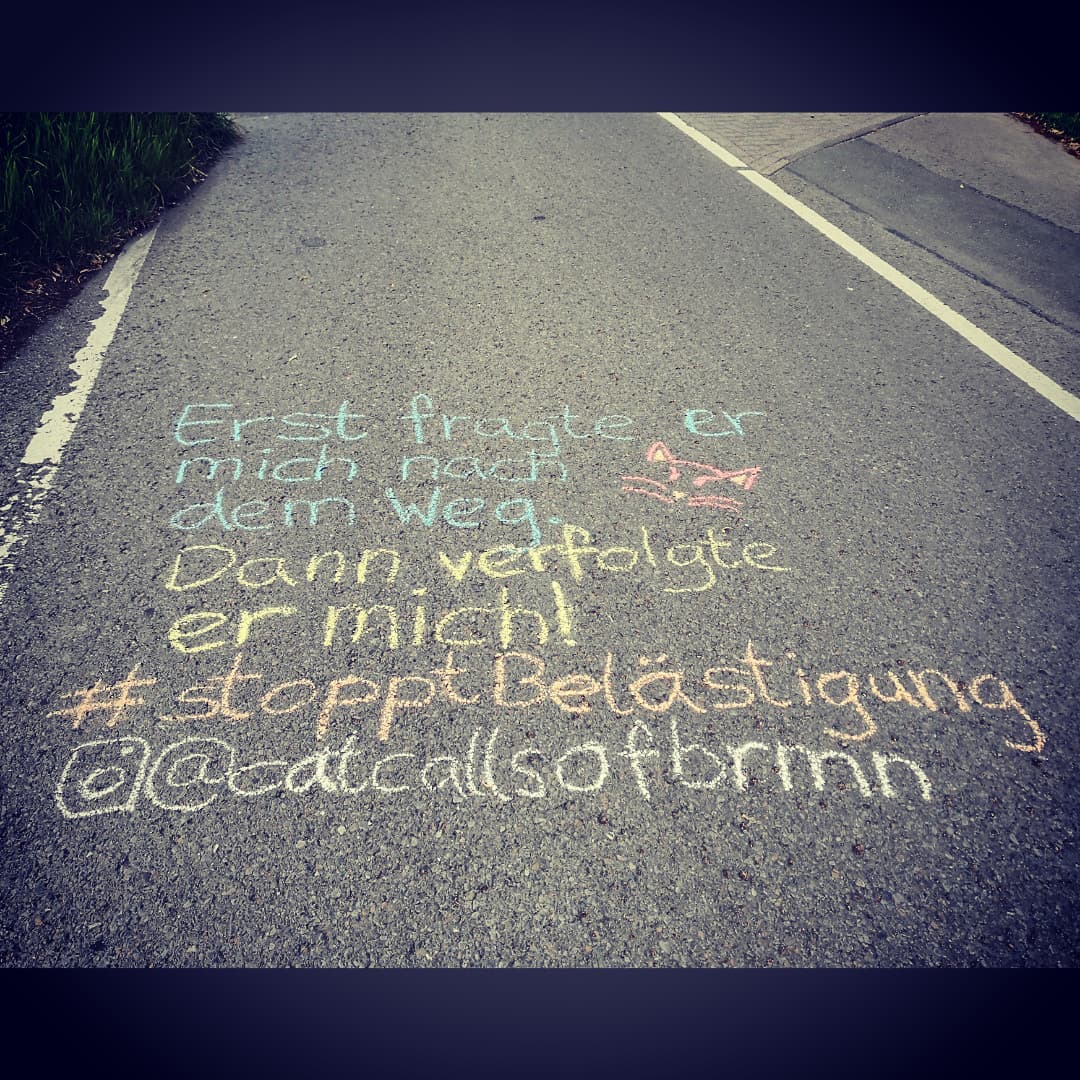 Erst fragte er
mich nach
dem Weg.
Dann verfolgte
er mich!
#stopptBelästigung
@catcallsofbrmn